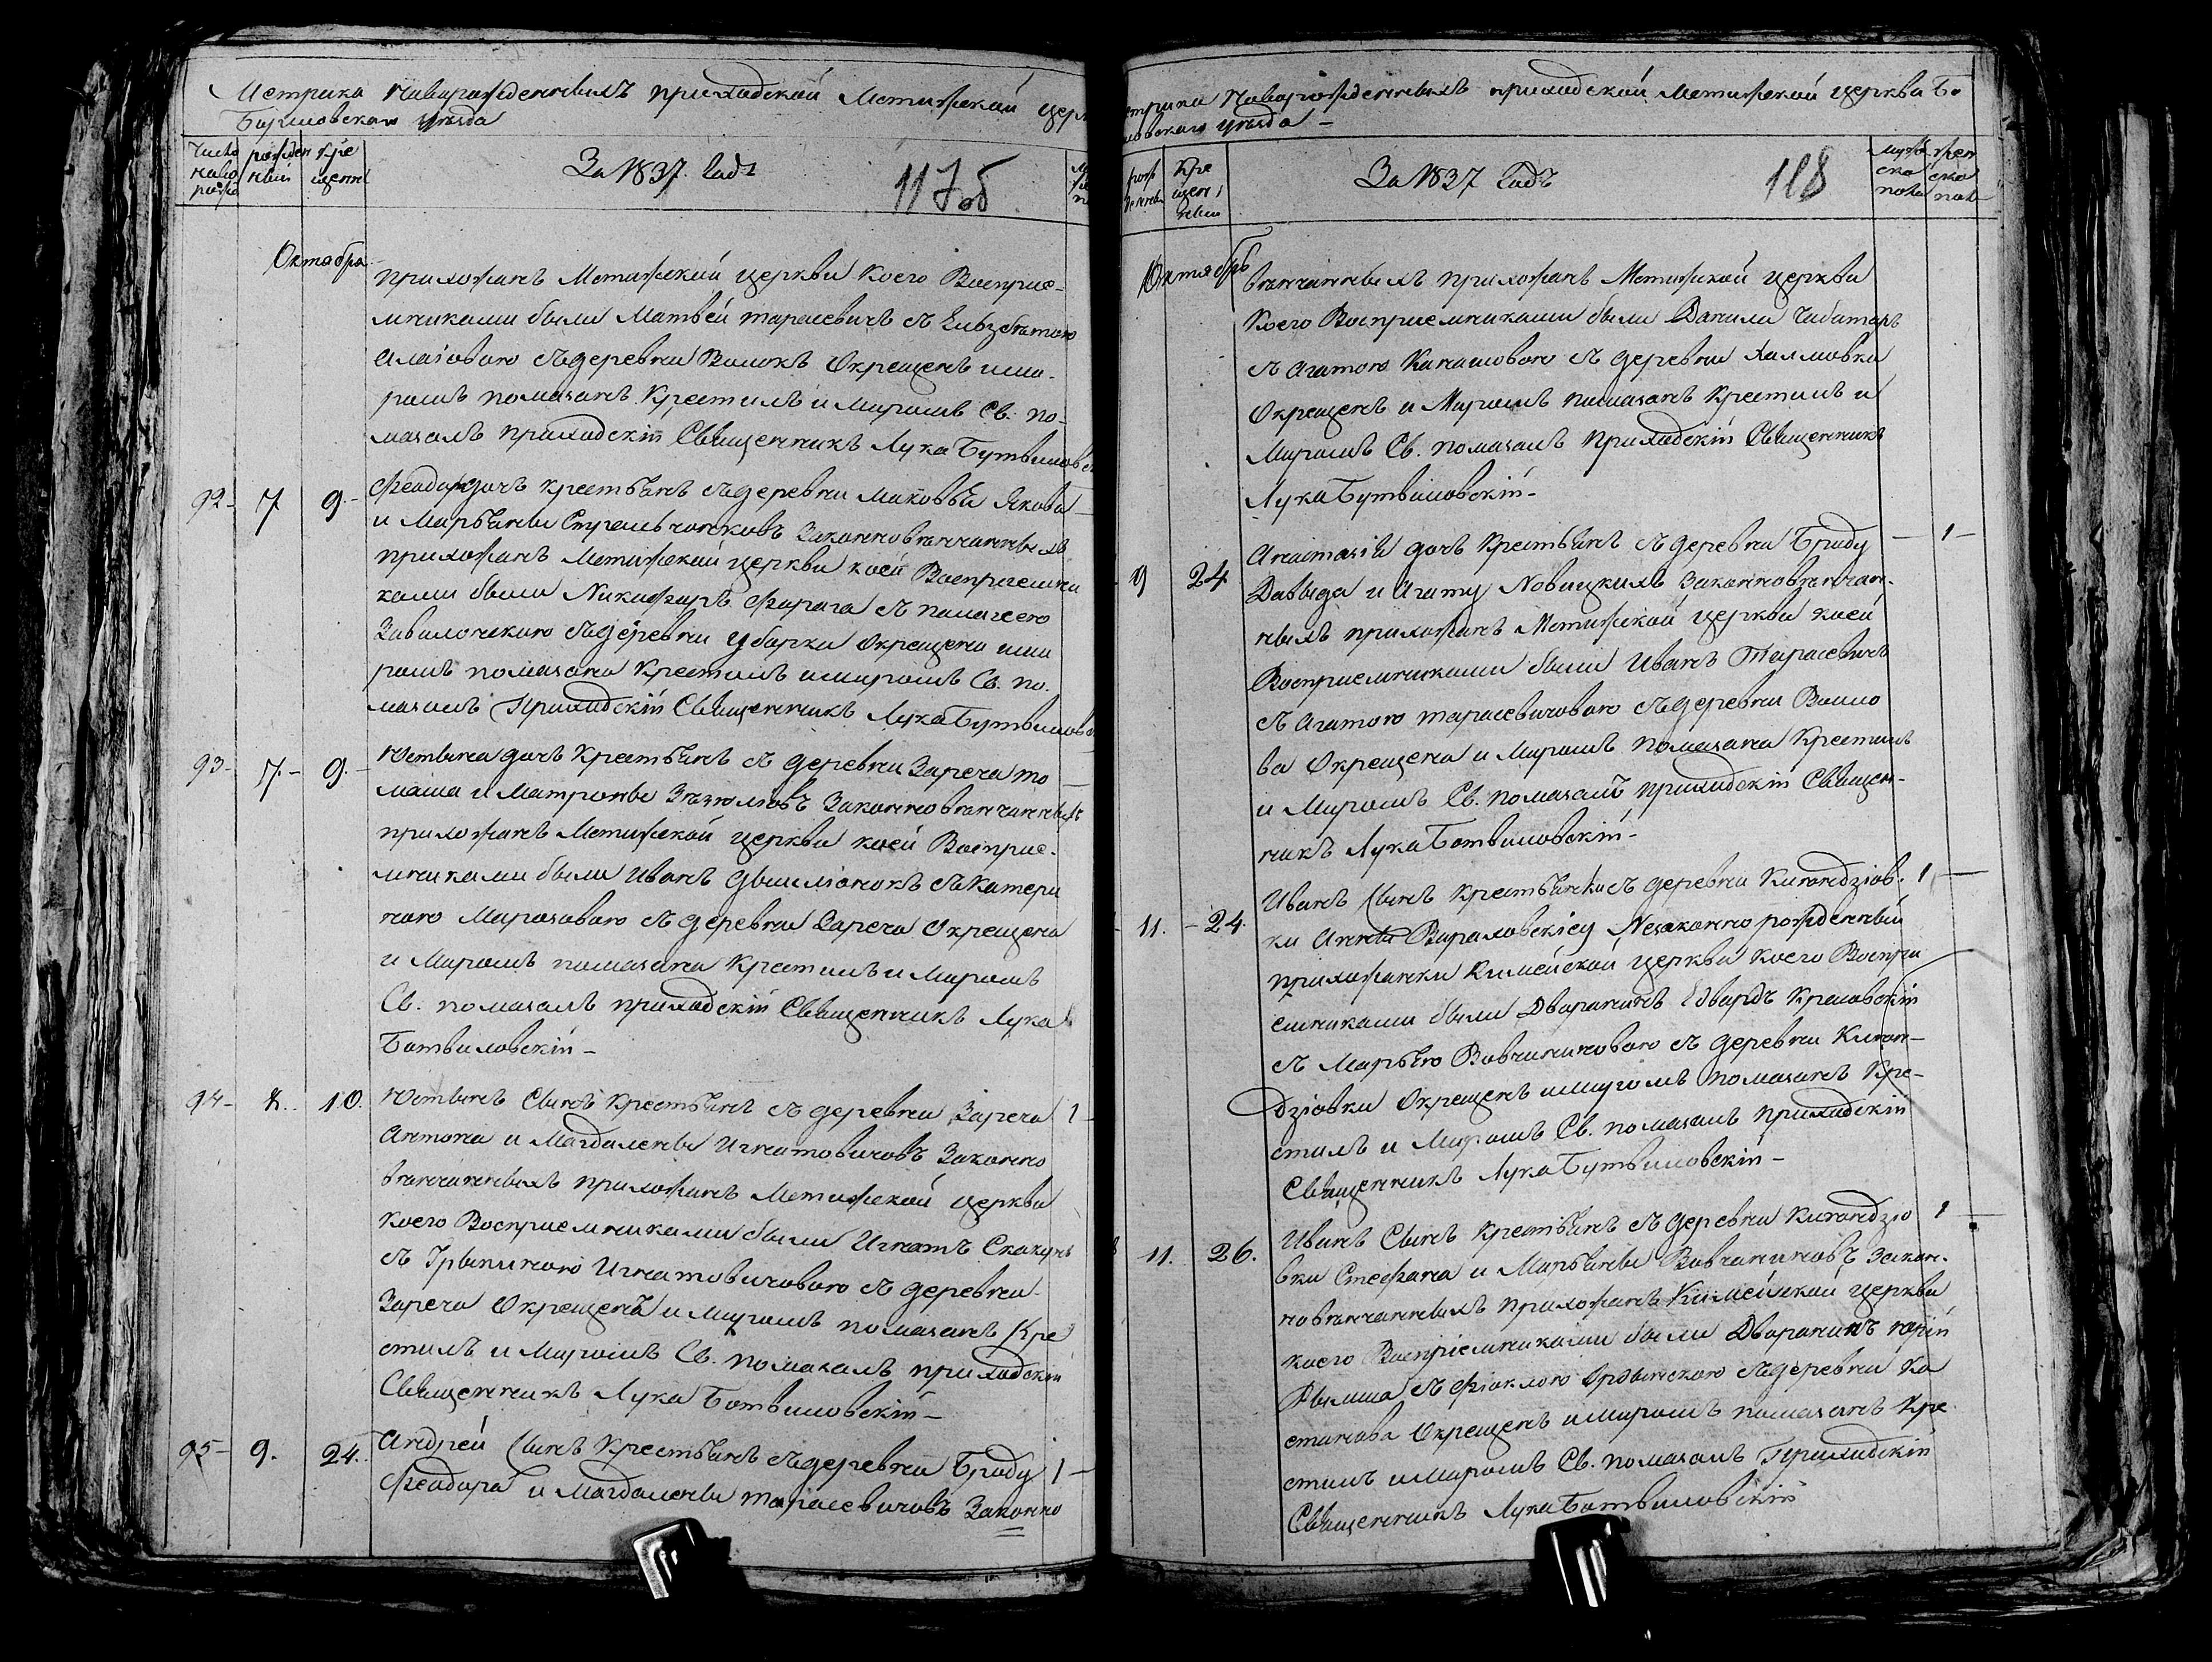 Метрика Новарожденныхъ приходской Метижской церк
Борисовскаго уезда
Число рожден кре
наро нныи щенн
рожд
За 1837. Годъ
117об
Октабра
прихожанъ Метижской церкви коего Восприе-
мниками были Матвей тарасевичъ съ Елизбетою
съ деревни Волокъ Окрещенъ и ми-
ромъ помазанъ Крестилъ и Миромъ Св. по-
мазалъ приходскій Священникъ Лука Бутвиловс
92- 7 9.- Феадора дочъ крестьянъ съ деревни Маковьи Якова
и Марьянны Стрельчонковъ Законновѣнчанныхъ
прихожанъ Метижской церкви коей Восприемни
ками были Никифаръ Фарага съ палагеею
съ деревни Уборки Окрещена и ми
ромъ помазана Крестилъ и миромъ Св. по.
мазалъ Приходскій Священникъ Лука Бутвиловс
93- 7.- 9.- Юстына дочъ Крестьянъ съ деревни Зареча то
маша и Матроны Законновѣнчанныхъ
прихожанъ Метижской церкви коей Восприе-
мниками были Иванъ съ Катери
ною Марозовою съ деревни Зареча Окрещена
и Миромъ помазана Крестилъ и Миромъ
Св. помазалъ приходскій Священникъ Лука
Ботвиловскій-
94- 8.. 10. Юстынъ Сынъ Крестьянъ съ деревни Зареча 1-
Антона и Магдалены Игнатовичовъ Законно
вѣнчанныхъ прихожанъ Метижской церкви
коего Восприемниками были Игнатъ Скакунъ
съ Грыпиною Игнатовичовою съ деревни
Зареча Окрещенъ и Миромъ помазанъ Кре
стилъ и Миромъ Св. помазалъ приходскій
Священникъ Лука Ботвиловскій-
95- 9. 24.. Андрей Сынъ Крестьянъ съ деревни Броду 1-
Феадора и Магдалены тарасевичовъ Законно
етрика Новарожденныхъ приходской Метижской церкви Бо
иловскаго уезда-
рож кре
денны щен
ныи
За 1837 Годъ
118
мужс жен
ска ска
пола пол
Октябрь
вѣнчанныхъ прихожанъ Метижской церкви
Коего Восприемниками были Данила Чабатаръ
съ Агатою Канашовою съ деревни Халмовки
Окрещенъ и Миромъ помазанъ Крестилъ и
Миромъ Св. помазалъ Приходскій Священникъ
Лука Бутвиловскій-
9 24 Анастасія дочъ Крестьянъ съ деревни Броду - 1-
Давыда и Агату Новицкихъ Законновѣнчан-
ныхъ прихожанъ Метижской церкви коей
Восприемниками были Иванъ Тарасевичъ
съ Агатою тарасевичовою съ деревни Вошло
ва Окрещена и Миромъ помазана Крестилъ
и Миромъ Св. помазалъ приходскій Священ-
никъ Лука Ботвиловскій-
11. - 24. Иванъ Сынъ Крестьянки съ деревни Кигондзіов- 1 -
ки Анны Незаконно рожденный
прихожанки Кимейской церкви коего Воспри
емниками были Дваранинъ Едвардъ Красовскій
съ Марьею Вавчаниновою съ деревни Кигон-
дзіовки Окрещенъ и миромъ помазанъ Кре-
стилъ и Миромъ Св. помазалъ приходскій
Священникъ Лука Бутвиловскій-
11. 26. Иванъ Сынъ Крестьянъ съ деревни Кигондзіо 1 -
вки Стефана и Марьянны Вавчаниновъ Закон-
новѣнчанныхъ прихожанъ Кимейской церкви
коего Воспріемниками были Дваранинъ юрій
съ Фіоклою съ деревни Ка
станова Окрещенъ и миромъ помазанъ Кре
стилъ и миромъ Св. помазалъ Приходскій
Священникъ Лука Ботвиловскій